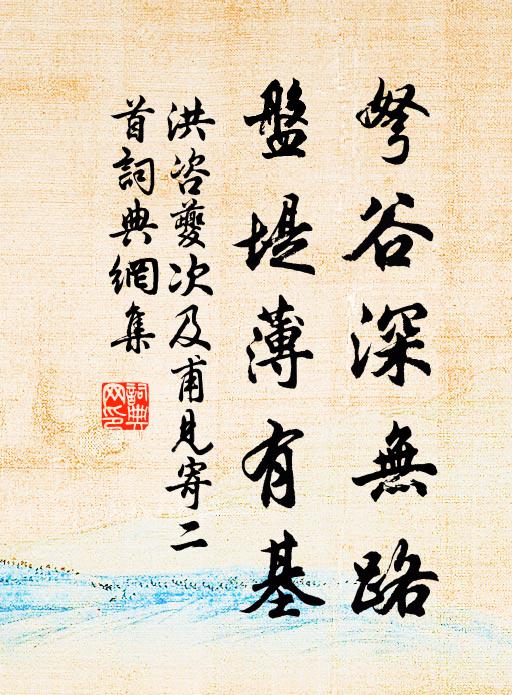 弩谷深無路
盤堤薄有基
洪咨夔次及甫見寄二
首詞典網集
詞典
网印